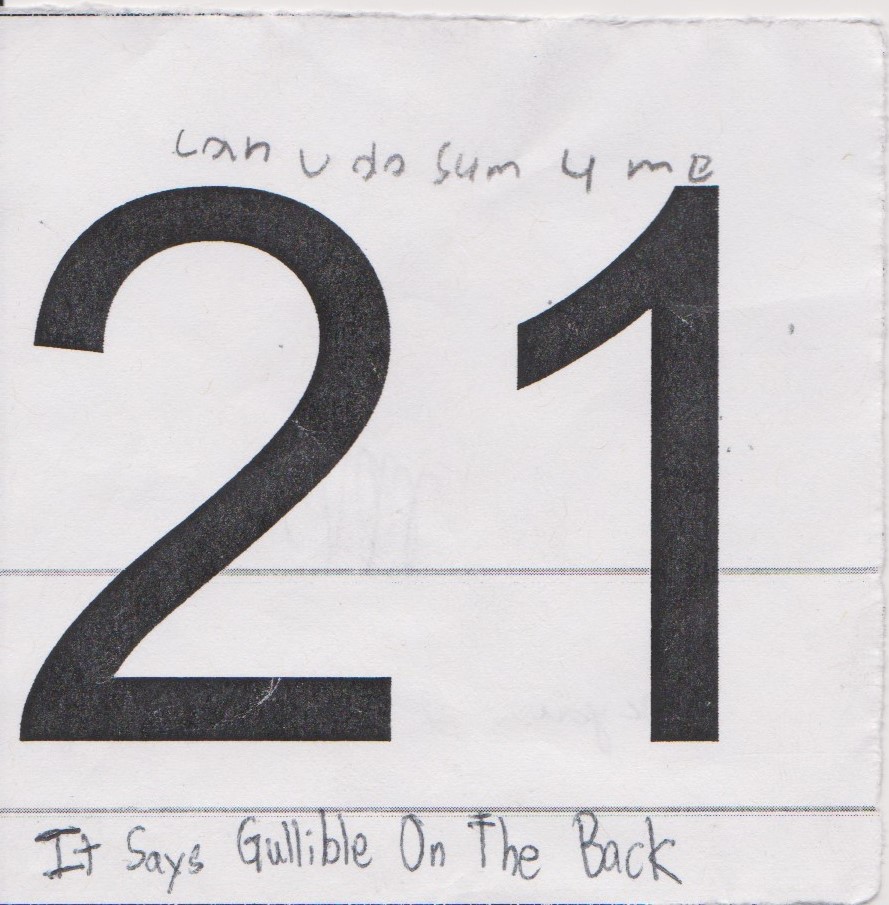 Can u do sum 4 me
21
It Says Gullible On The Back